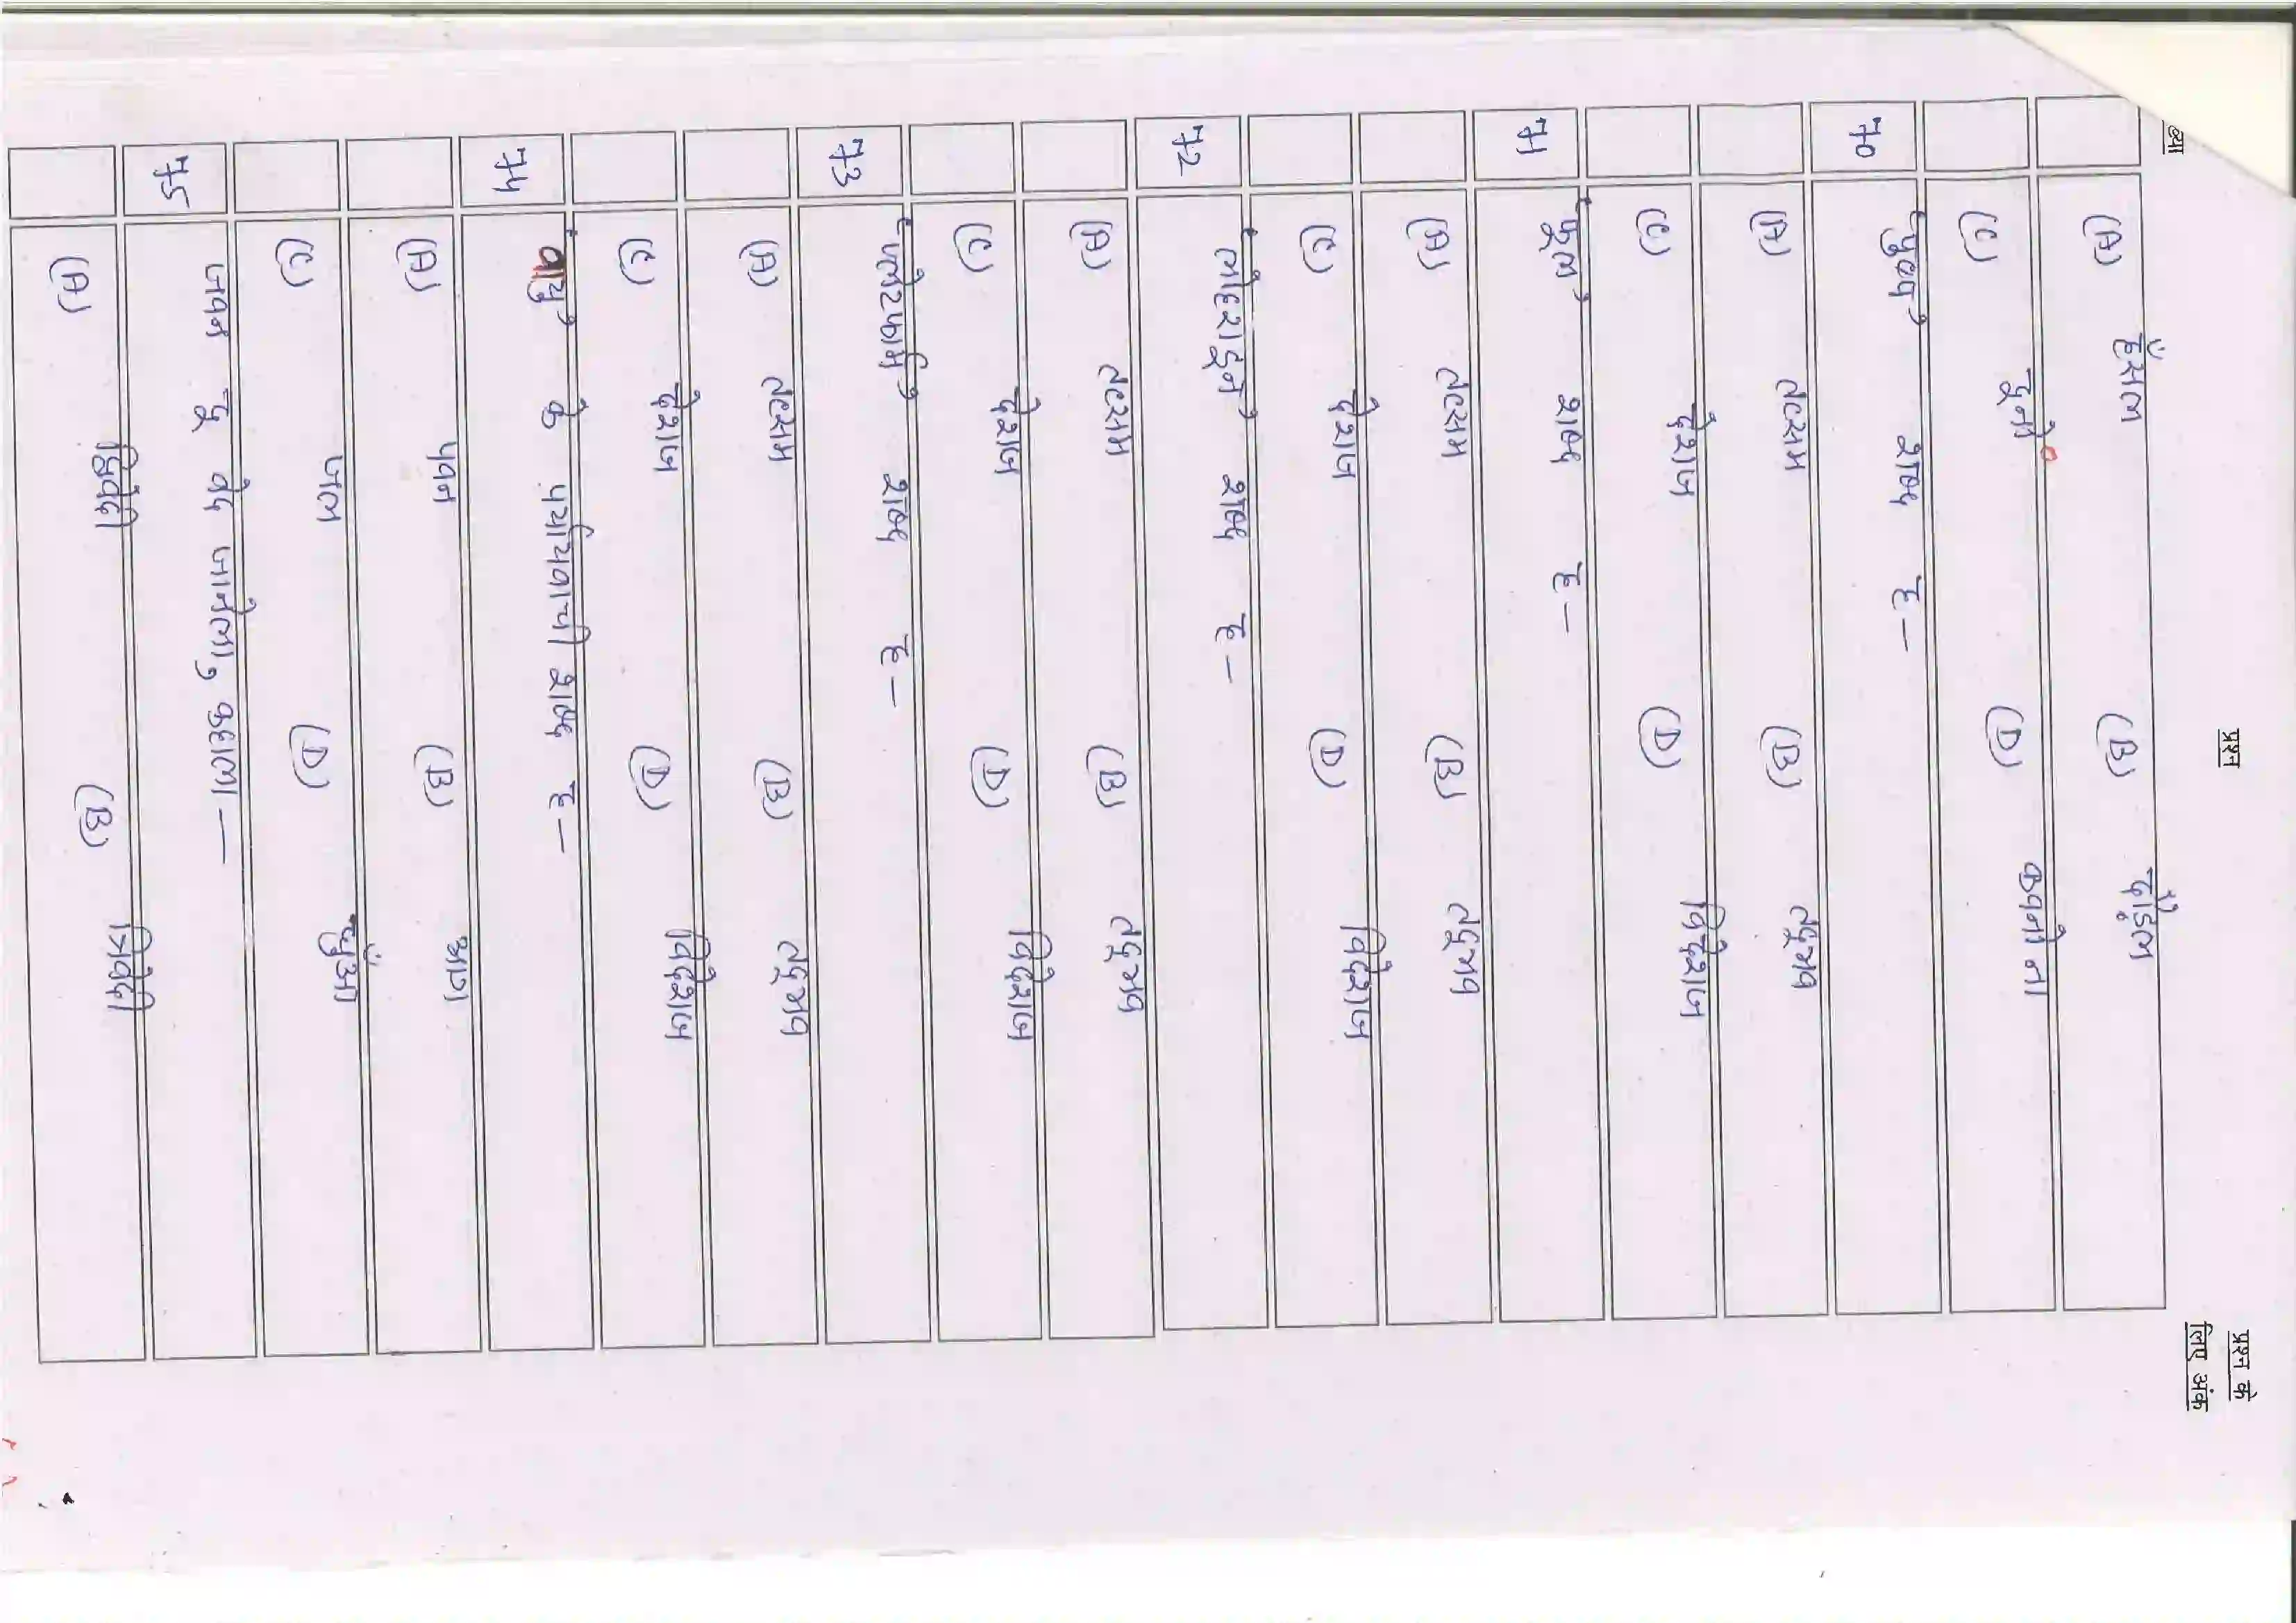 ख्या प्रश्न प्रश्न के
लिए अंक
(A) हँसल (B) दौड़ल
(C) दूनो (D) कवनो ना
70 'पुष्प' शब्द ह —
(A) तत्सम (B) तद्भव
(C) देशज (D) विदेशज
71 'फूल' शब्द ह —
(A) तत्सम (B) तद्भव
(C) देशज (D) विदेशज
72 'लोहराडून' शब्द ह —
(A) तत्सम (B) तद्भव
(C) देशज (D) विदेशज
73 'प्लेटफार्म' शब्द ह —
(A) तत्सम (B) तद्भव
(C) देशज (D) विदेशज
74 'वायु' के पर्यायवाची शब्द ह —
(A) पवन (B) आग
(C) जल (D) धुँआ
75 जवन दू वेद जानेला, कहाला —
(A) द्विवेदी (B) त्रिवेदी